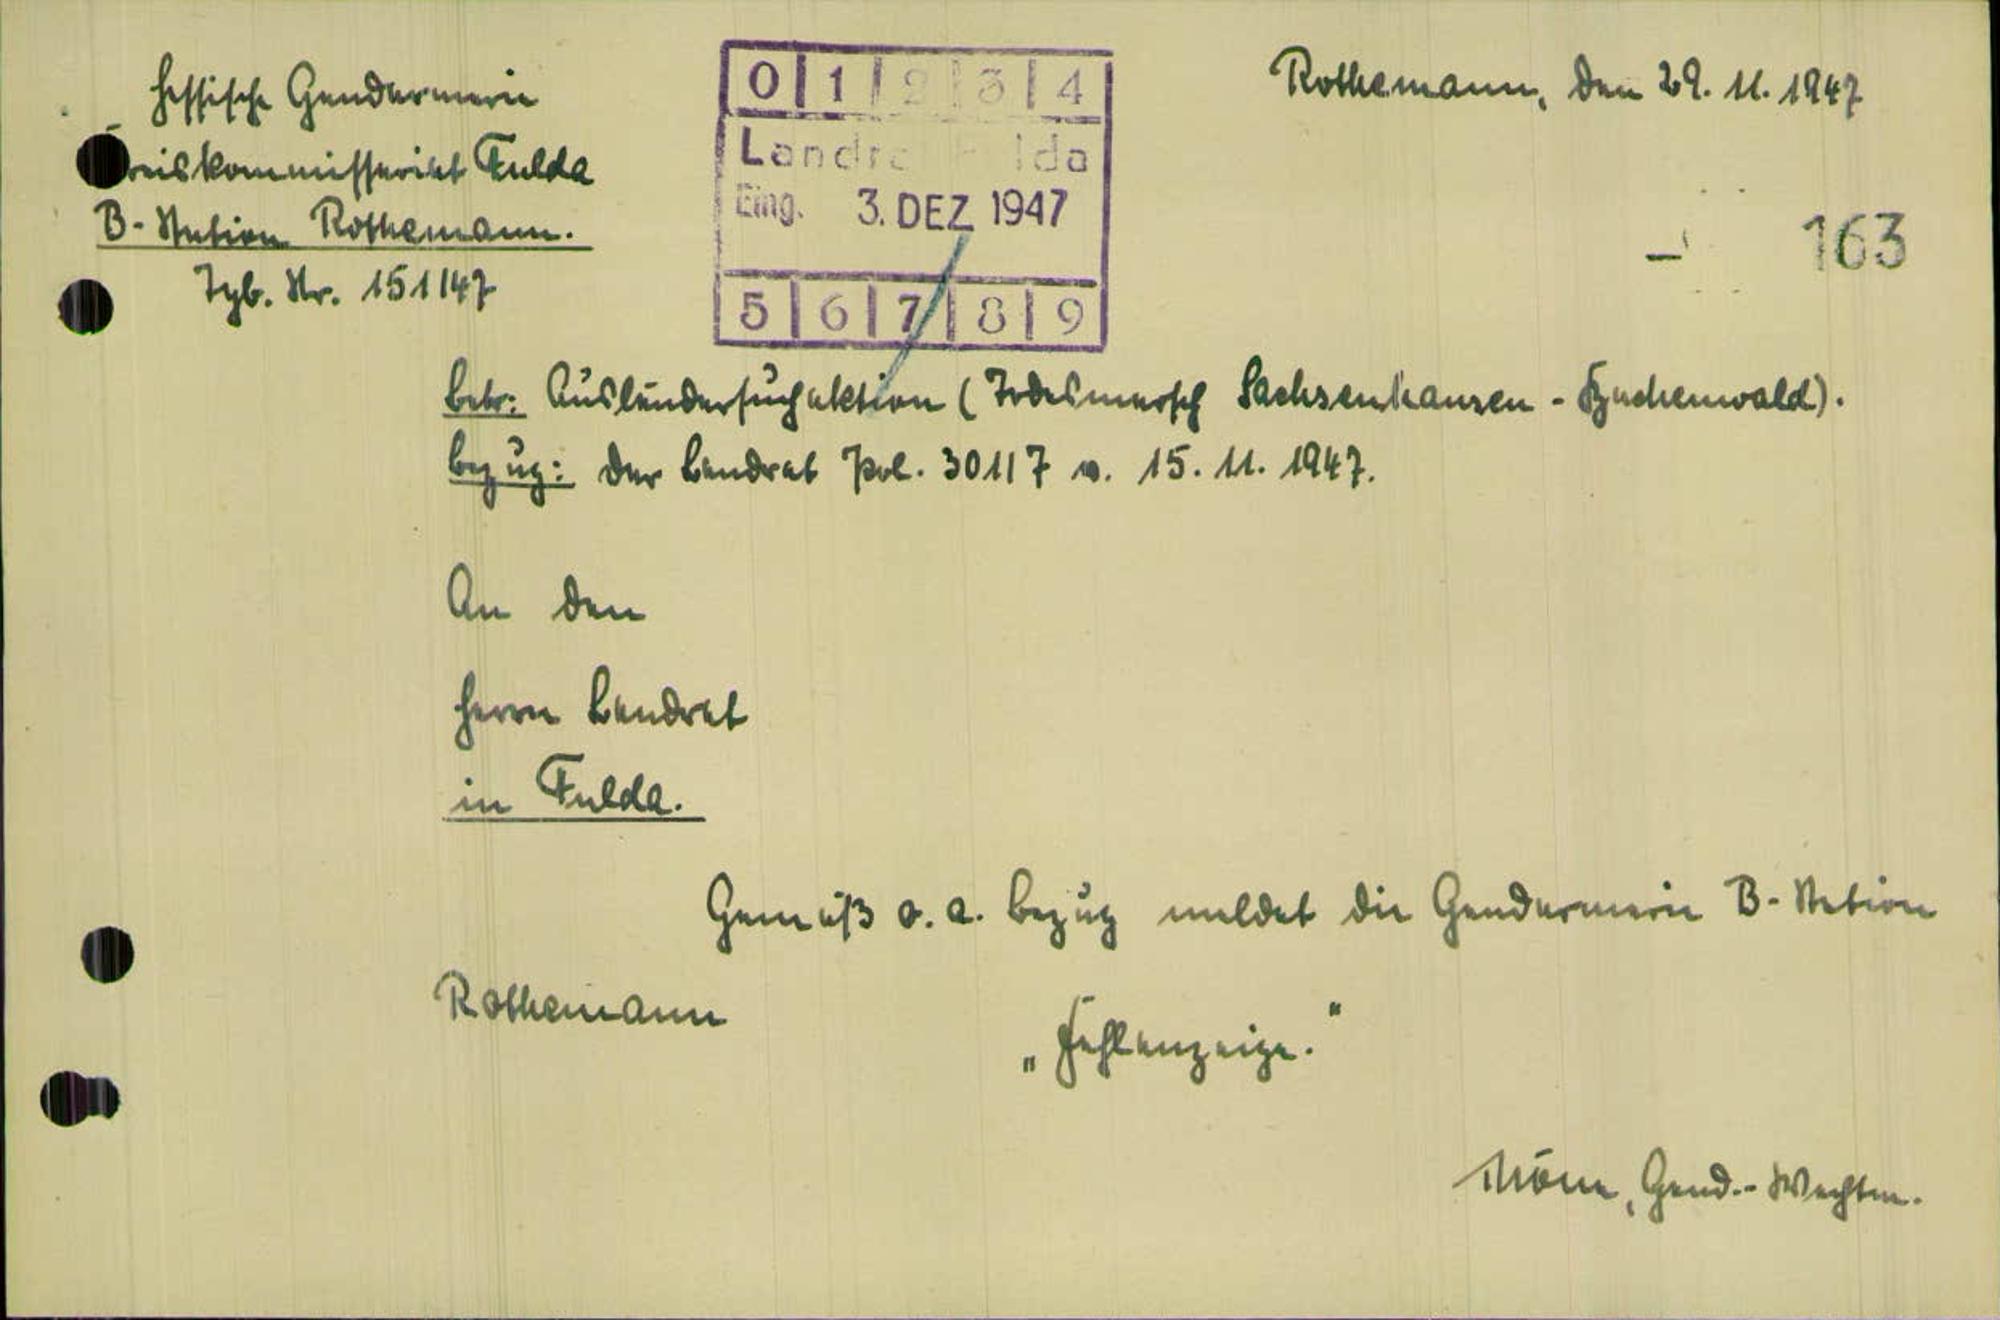 Hessische Gendarmerie
Kreiskommissariat Fulda
B-Station Rothemann.
Tgb. Nr. 151/47
0 1 2 3 4
Landrat Fulda
Eing. 3. DEZ 1947
5 6 7 8 9
Rothemann, den 29. 11. 1947
163
Betr: Ausländersuchaktion (Todesmarsch Sachsenhausen - Buchenwald).
Bezug: Der Landrat Pol. 30117 v. 15. 11. 1947.
An den
Herrn Landrat
in Fulda.
Gemäß o. a. Bezug meldet die Gendarmerie B-Station
Rothemann
„Fehlanzeige."
Gend.-Wachtm.